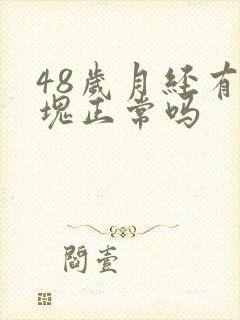 48歲月經有
塊正常吗
閻壹